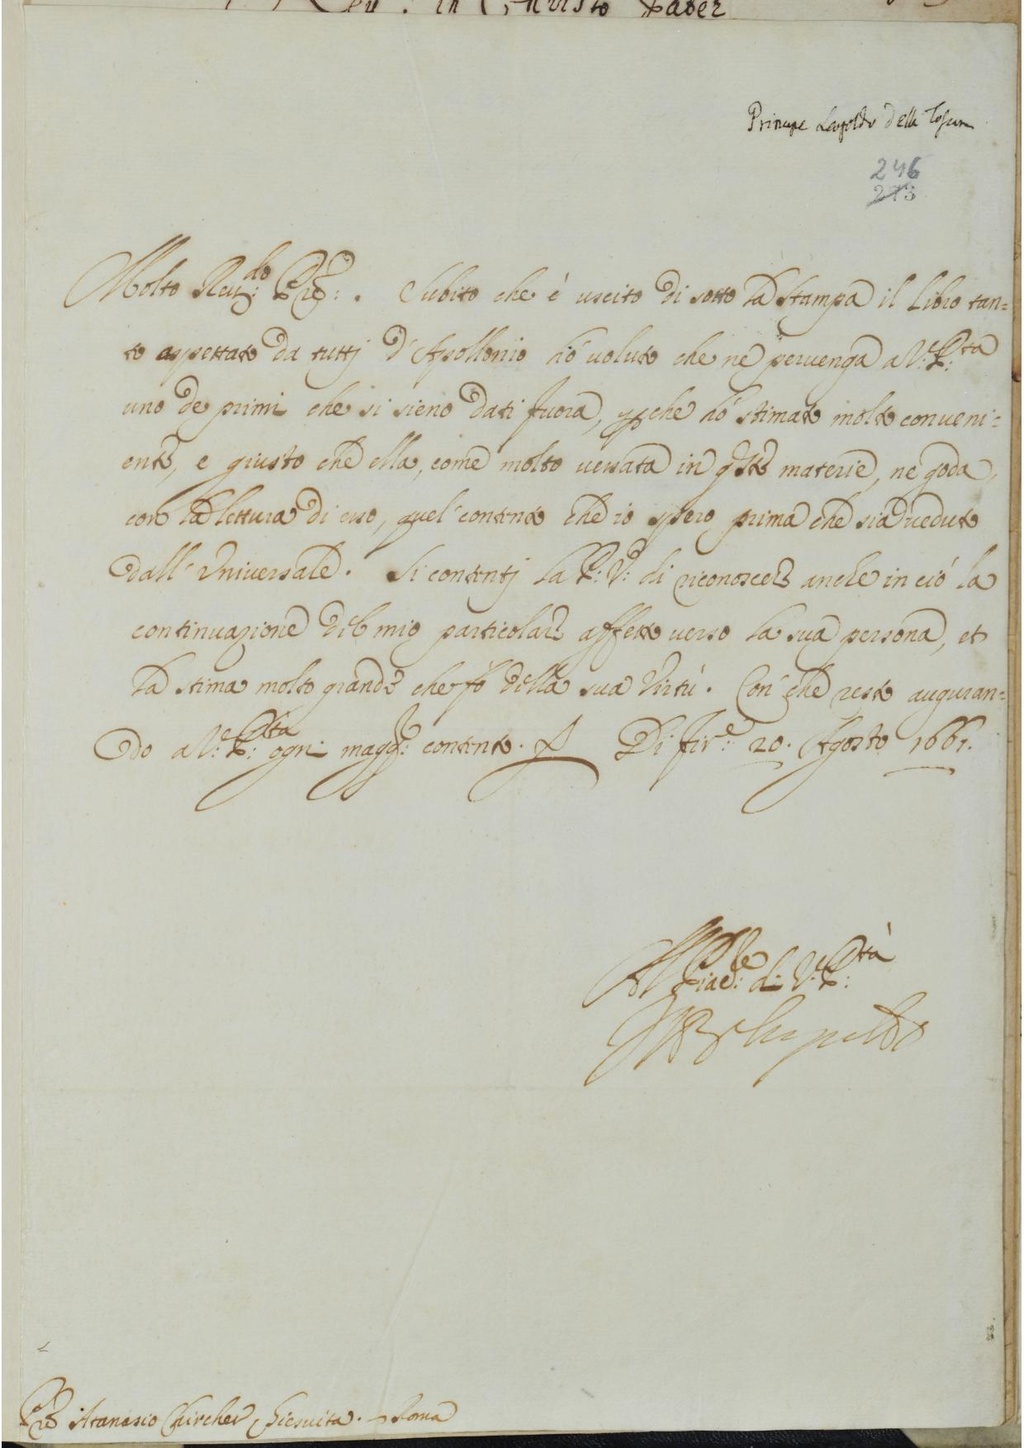 in Christo Pater
Principe Leopoldo della Toscana
246
273
Molto Reu:do P're:. Subito che è uscito di sotto la stampa il Libro tan=
to aspettato da tutti d'Apollonio hò uoluto che ne peruenga a V:P:ta
uno de primi che si sieno dati fuora, p che hò stimato molto conueni=
ente, e giusto che ella, come molto uersata in q'ste materie, ne goda,
con la lettura di esso, quel contento che io spero prima che sia ueduto
dall'Vniuersale. Si contenti la P:V: di riconoscere anche in ciò la
continuazione del mio particolare affetto uerso la sua persona, et
la stima molto grande che fò della sua Virtù. Con che resto auguran=
do a V:P:ta ogni magg:r contento. Di Fir:e 20. Agosto 1661.
Al Piac:le di V:P:tà
Leopoldo
P're Atanasio Chircher, Giesuita. Roma